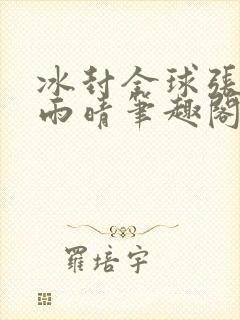 冰封全球張
雨晴筆趣閣
羅培宇